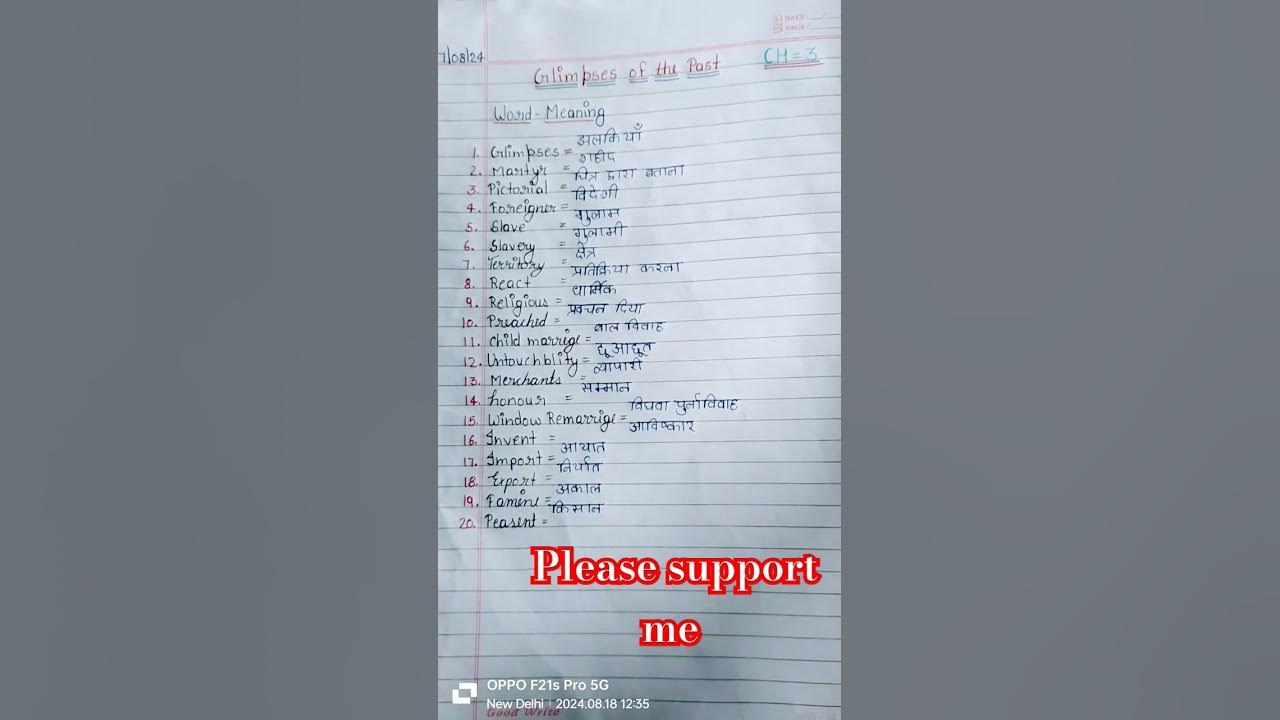 DATE: __/__/
PAGE:
7/08/24
CH = 3
Glimpses of the Past
Word - Meaning
1. Glimpses = झलकियाँ
2. Martyr = शहीद
3. Pictorial = चित्र द्वारा बताना
4. Foreigner = विदेशी
5. Slave = गुलाम
6. Slavery = गुलामी
7. Territory = क्षेत्र
8. React = प्रतिक्रिया करना
9. Religious = धार्मिक
10. Preached = प्रवचन दिया
11. Child marrige = बाल विवाह
12. Untouchblity = छूआछूत
13. Merchants = व्यापारी
14. honour = सम्मान
15. Window Remarrige = विधवा पुर्नाविवाह
16. Invent = आविष्कार
17. Import = आयात
18. Export = निर्यात
19. Famine = अकाल
20. Peasent = किसान
Please support
me
OPPO F21s Pro 5G
New Delhi | 2024.08.18 12:35
Good Write